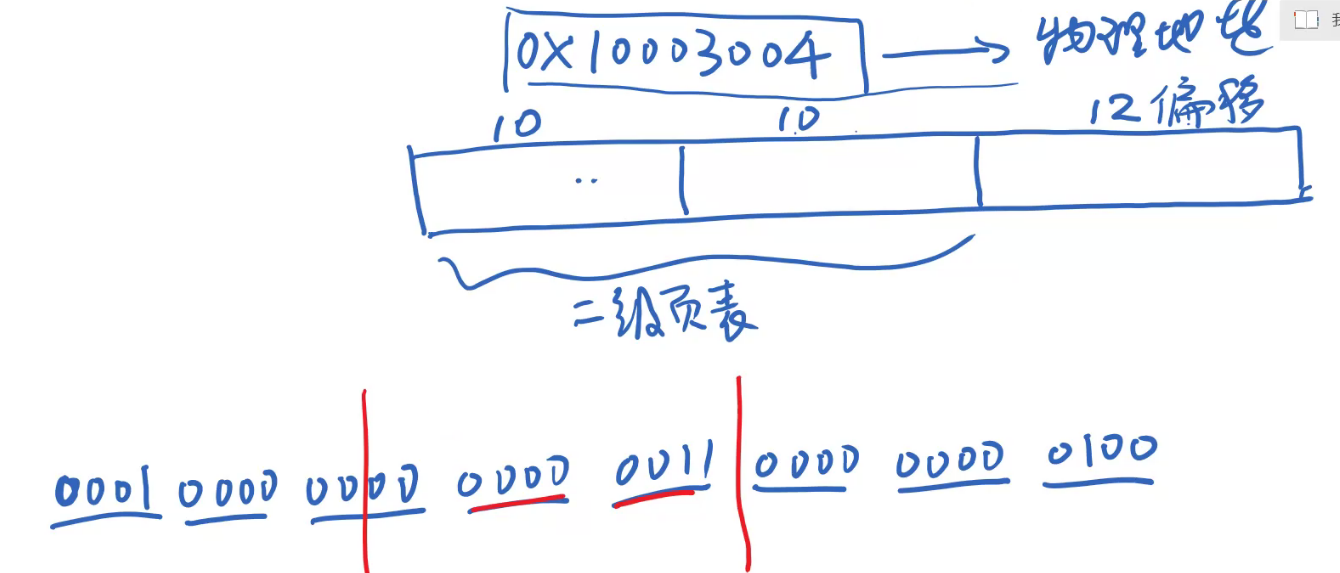 0X10003004 → 物理地址
10 10 12偏移
二级页表
0001 0000 0000 0000 0011 0000 0000 0100